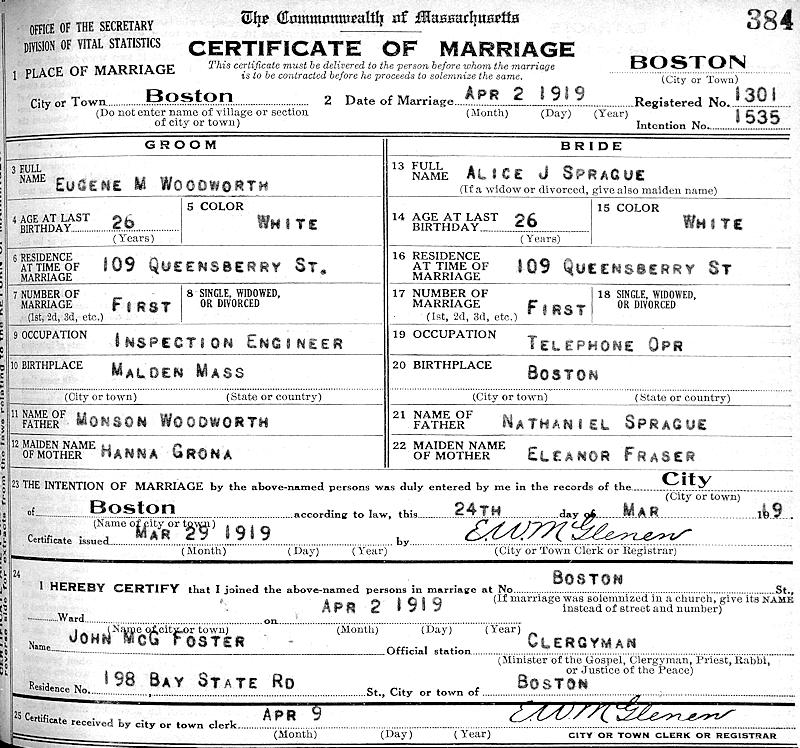 The Commonwealth of Massachusetts
384
OFFICE OF THE SECRETARY
DIVISION OF VITAL STATISTICS
CERTIFICATE OF MARRIAGE
This certificate must be delivered to the person before whom the marriage
is to be contracted before he proceeds to solemnize the same.
BOSTON
(City or Town)
1 PLACE OF MARRIAGE
City or Town Boston
(Do not enter name of village or section
of city or town)
2 Date of Marriage APR 2 1919
(Month) (Day) (Year)
Registered No. 1301
Intention No. 1535
GROOM
3 FULL NAME EUGENE M WOODWORTH
4 AGE AT LAST BIRTHDAY 26
(Years)
5 COLOR WHITE
6 RESIDENCE AT TIME OF MARRIAGE 109 QUEENSBERRY ST.
7 NUMBER OF MARRIAGE FIRST
(1st, 2d, 3d, etc.)
8 SINGLE, WIDOWED, OR DIVORCED
9 OCCUPATION INSPECTION ENGINEER
10 BIRTHPLACE MALDEN MASS
(City or town) (State or country)
11 NAME OF FATHER MONSON WOODWORTH
12 MAIDEN NAME OF MOTHER HANNA GRONA
BRIDE
13 FULL NAME ALICE J SPRAGUE
(If a widow or divorced, give also maiden name)
14 AGE AT LAST BIRTHDAY 26
(Years)
15 COLOR WHITE
16 RESIDENCE AT TIME OF MARRIAGE 109 QUEENSBERRY ST
17 NUMBER OF MARRIAGE FIRST
(1st, 2d, 3d, etc.)
18 SINGLE, WIDOWED, OR DIVORCED
19 OCCUPATION TELEPHONE OPR
20 BIRTHPLACE BOSTON
(City or town) (State or country)
21 NAME OF FATHER NATHANIEL SPRAGUE
22 MAIDEN NAME OF MOTHER ELEANOR FRASER
23 THE INTENTION OF MARRIAGE by the above-named persons was duly entered by me in the records of the City
(City or town)
of Boston according to law, this 24TH day of MAR 1919
(Name of city or town)
Certificate issued MAR 29 1919 by E W McGlenen
(Month) (Day) (Year) (City or Town Clerk or Registrar)
24 I HEREBY CERTIFY that I joined the above-named persons in marriage at No. BOSTON St.,
(If marriage was solemnized in a church, give its NAME
instead of street and number)
Ward on APR 2 1919
(Name of city or town) (Month) (Day) (Year)
Name JOHN MCG FOSTER Official station CLERGYMAN
(Minister of the Gospel, Clergyman, Priest, Rabbi,
or Justice of the Peace)
Residence No. 198 BAY STATE RD St., City or town of BOSTON
25 Certificate received by city or town clerk APR 9 E W McGlenen
(Month) (Day) (Year) CITY OR TOWN CLERK OR REGISTRAR